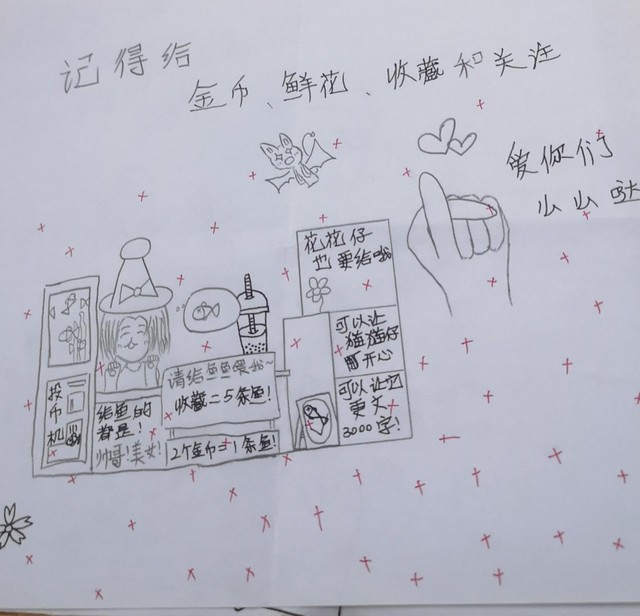 记得给
金币、鲜花、收藏和关注
爱你们
么么哒
花花仔
也要给哦
可以让
猫猫仔
开心
可以让它
更文
3000字!
请给鱼鱼喂我~
收藏=5条鱼!
2个金币=1条鱼!
投
币
机
给鱼的
都是!
帅哥!美女!